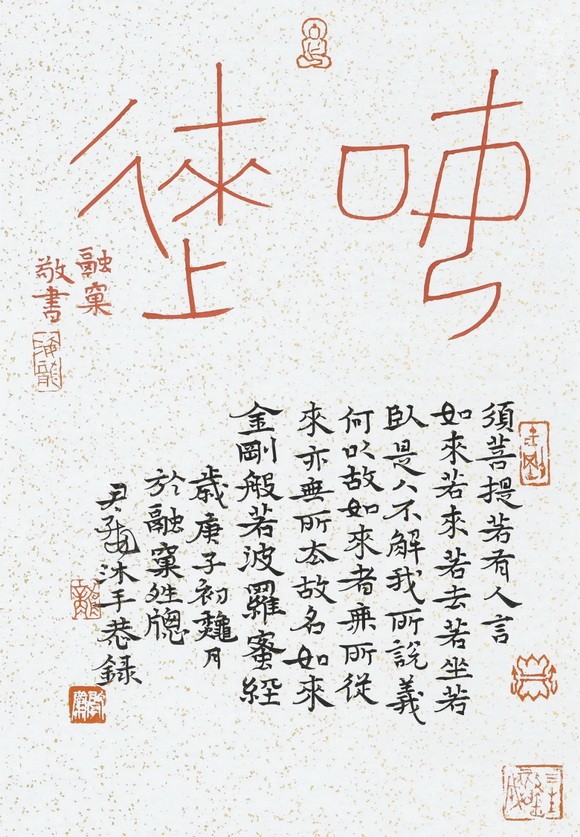 如來
融窠
敬書
海龍
金剛
須菩提若有人言
如來若來若去若坐若
臥是人不解我所說義
何以故如來者無所從
來亦無所去故名如來
金剛般若波羅蜜經
歲庚子初龝月
於融窠牕
尹海龍沐手恭錄